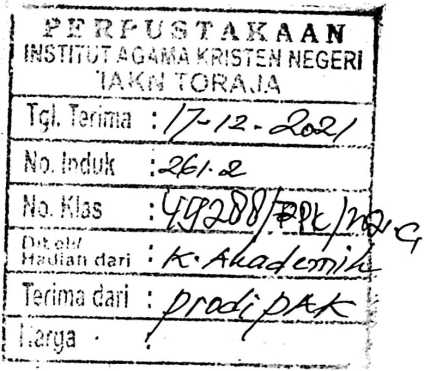 PERPUSTAKAAN
INSTITUT AGAMA KRISTEN NEGERI
IAKN TORAJA
Tgl. Terima : 17-12-2021
No. Induk : 261.2
No. Klas :
Dibeli/
Hadiah dari : K. Akademik
Terima dari : prodi PAK
Harga :